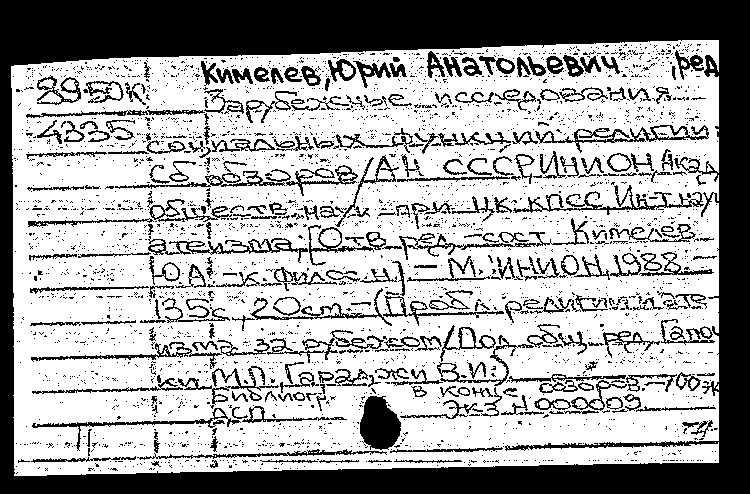 Кимелев, Юрий Анатольевич, ред
89-50К Зарубежные исследования
4335 социальных функций религии:
Сб. обзоров/АН СССР, ИНИОН, Акад.
обществ. наук при ЦК КПСС, Ин-т науч
атеизма; [Отв. ред.-сост. Кимелев
Ю.А. -к.филос.н.]. - М.: ИНИОН, 1988. -
135с., 20см. - (Пробл. религии и ате-
изма за рубежом/Под общ. ред. Гапоч
ки М.П., Гараджи В.И.)
Библиогр. в конце обзоров. - 700эк
ДСП. Экз. N000009.